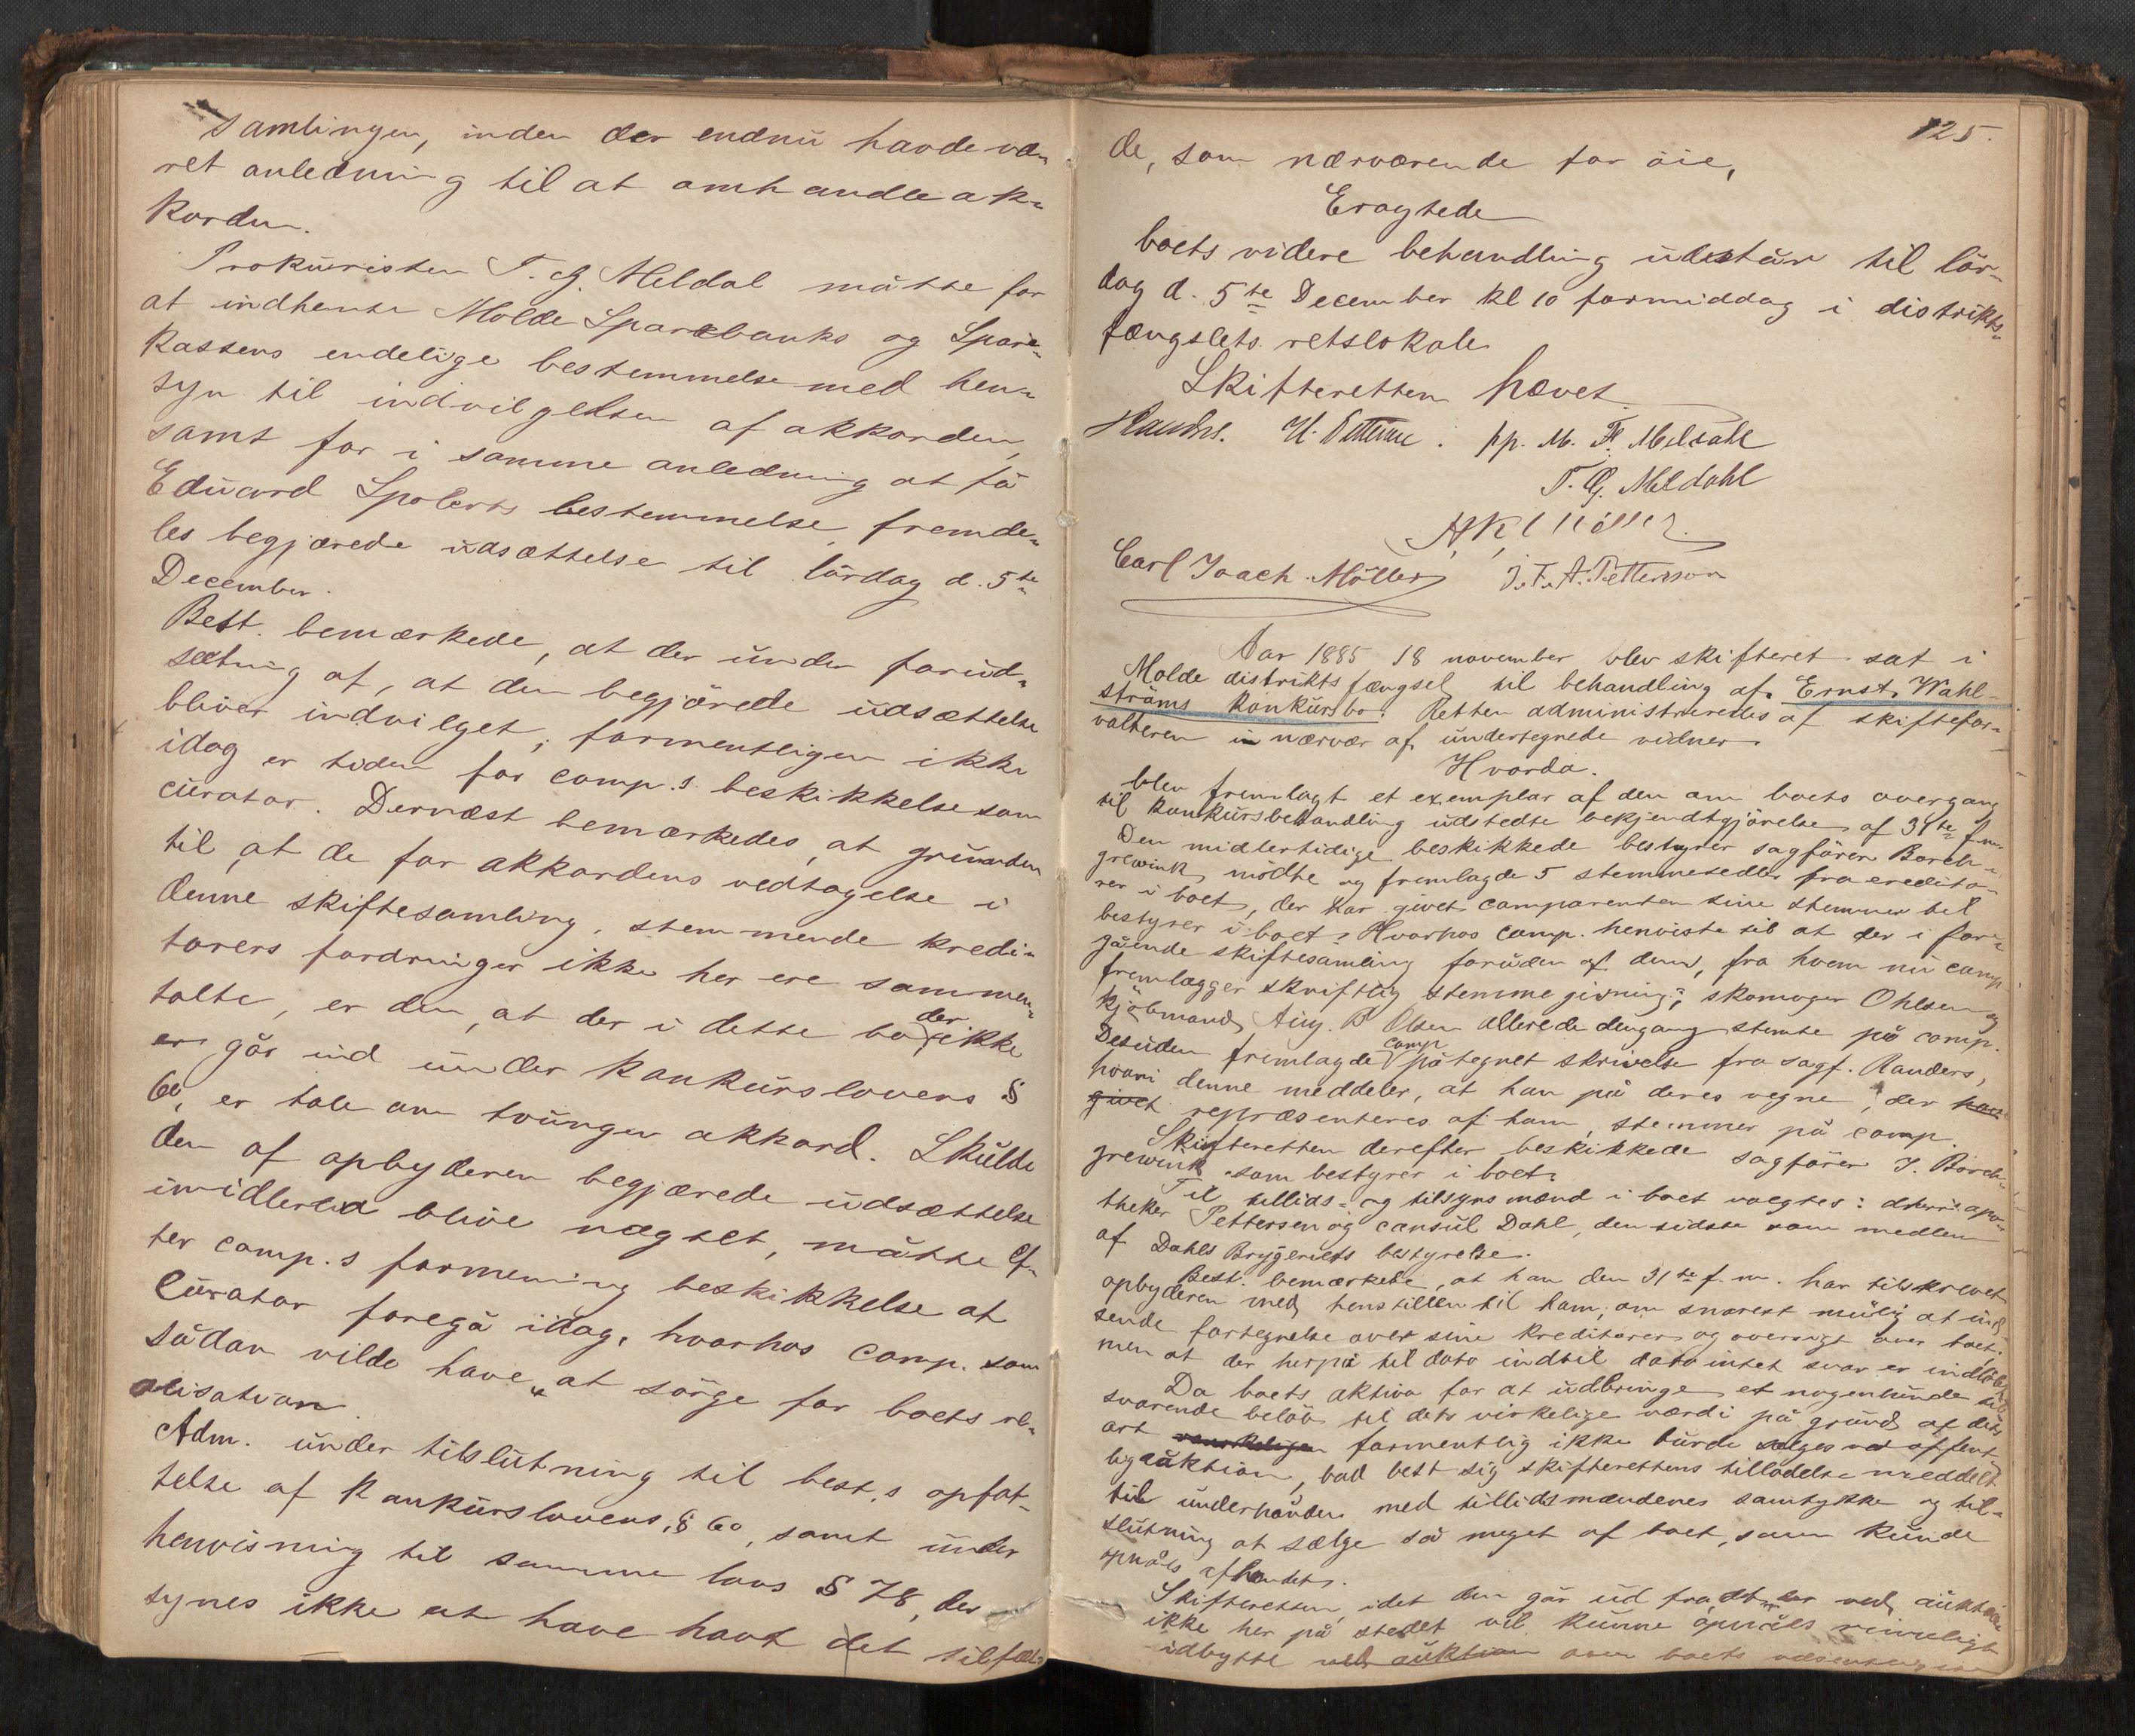 samlingen, inden der endnu havde væ„
ret anledning til at omhandle ak„
korden.
Prokuristen T. G. Meldal måtte for
at indhente Molde Sparebanks og Spare„
kassens endelige bestemmelse med hen„
syn til indvilgelsen af akkorden,
samt for i samme anledning at få
Eduard Spolerts bestemmelse, fremde„
les begjærede udsættelse til lördag d. 5te
December.
Best. bemærkede, at der under forud„
sætning af, at den begjærede udsættelse
bliver indvilget, formentligen ikke
idag er tiden for comp.s beskikkelse som
curator. Dernæst bemærkedes, at grunden
til, at de for akkordens vedtagelse i
denne skiftesamling, stemmende kredi„
torers fordringer ikke her ere sammen„
talte, er den, at der i dette bo der ikke
går ind under konkurslovens §
60, er tale om tvungen akkord. Skulde
den af opbyderen begjærede udsættelse
imidlertid blive nægtet, måtte ef„
ter comp.s formening beskikkelse af
Curator foregå idag, hvorhos comp. som
sådan vilde have at sörge for boets re„
alisation.
Adm. under tilslutning til best.s opfat„
telse af Konkurslovens § 60, samt under
henvisning til samme lovs § 78, der
synes ikke at have havt det tilfæl„
125.
de, som nærværende for öie,
Eragtede
boets videre behandling udstår til lör„
dag d. 5te December kl 10 formiddag i distrikts„
fængslets retslokale
Skifteretten hævet
H. pp. M. Meldahl
T. G. Meldahl
A K Möller
Carl Joach. Möller J. F. A. Pettersson
Aar 1885 18 november blev skifteret sat i
Molde distriktsfængsel til behandling af Ernst Wahl-
ströms konkursbo. Retten administreredes af skiftefor„
valteren i nærvær af undertegnede vidner.
Hvorda.
blev fremlagt et exemplar af den om boets overgang
til konkursbehandling udstedte bekjendtgjörelse af 31te f.m.
Den midlertidige beskikkede bestyrer sagförer Borch„
grewink mödte og fremlagde 5 stemmesedler fra credito„
rer i boet, der har givet comparenten sine stemmer til
bestyrer i boet. Hvorhos comp. henviste til at der i for„
gående skiftesamling foruden af dem, fra hvem nu comp.
fremlægger skriftlig stemmegivning, skomager Ohlsen og
kjöbmand Aug. B Olsen allerede dengang stemte på comp.
Desuden fremlagde comp påtegnet skrivelse fra sagf. Randers,
hvori denne meddeler, at han på deres vegne, der
repræsenteres af ham, stemmer på comp.
Skifteretten derefter beskikkede sagförer J. Borch„
grewink som bestyrer i boet.
Til tillids- og tilsynsmænd i boet valgtes: d'herrer apo„
theker Pettersen og consul Dahl, den sidste som medlem
af Dahls Bryggeriets bestyrelse.
Best. bemærkede, at han den 31te f.m. har tilskrevet
opbyderen med henstillen til ham, om snarest mulig at ind„
sende fortegnelse over sine kreditorer og oversigt over boet;
men at der herpå til dato indtil dato intet svar er indlöbet
Da boets aktiva for at udbringe et nogenlunde til
svarende belöb til dets virkelige værdi på grund af dets
art formentlig ikke burde sælges ved offent
lig auktion, bad best sig skifterettens tilladelse meddelt
til underhånden med tillidsmændenes samtykke og til„
slutning at sælge så meget af boet, som kunde
opnåes afhændet.
Skifteretten, idet den går ud fra at der ved auktion
ikke her på stedet vil kunne opnåes rimeligt
udbytte ved auktion over boets